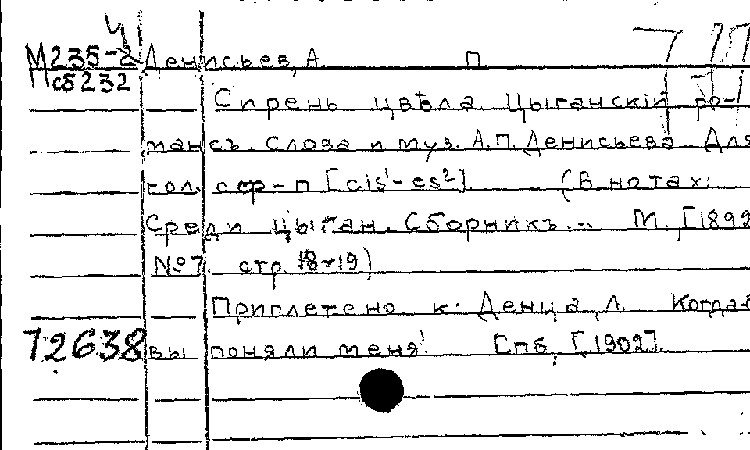 М235-2 Денисьев, А. П
Сб232
Сирень цвѣла. Цыганскій ро-
мансъ. Слова и муз. А.П. Денисьева. Для
гол. с ф-п [cis¹-es²] (В нотах:
Среди цыган. Сборникъ.- М. [1892
№7 стр. 18-19)
Приплетено к: Денца, Л. Когда б
72638 вы поняли меня! Спб, [1902].